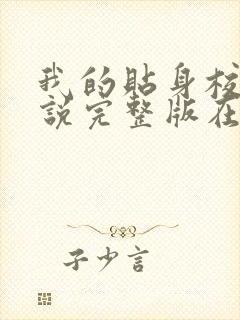 我的贴身校
说完整版在
子少言